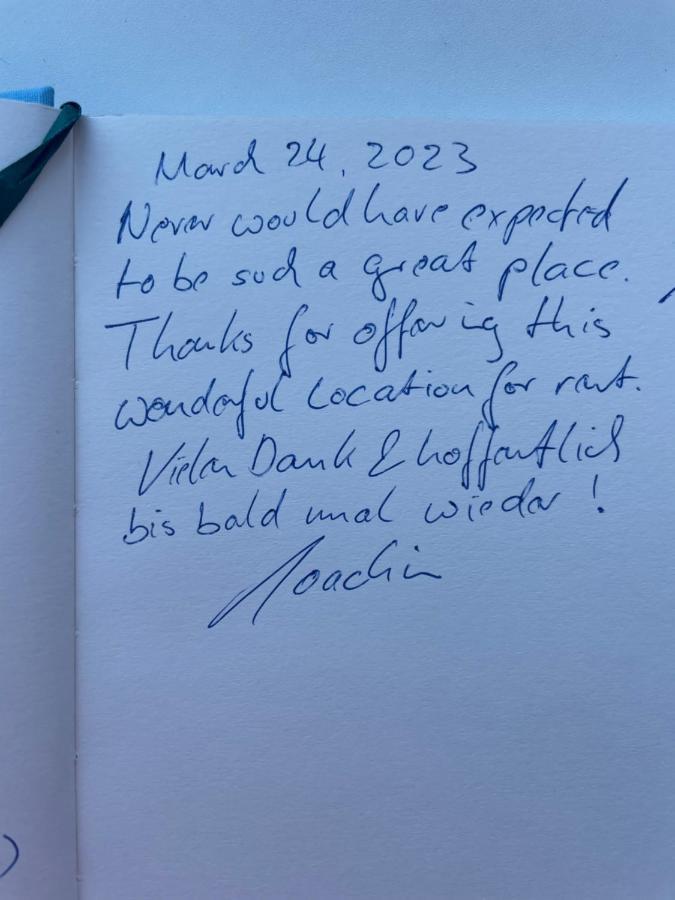 March 24, 2023
Never would have expected
to be such a great place.
Thanks for offering this
wonderful location for rent.
Vielen Dank & hoffentlich
bis bald mal wieder!
Joachim